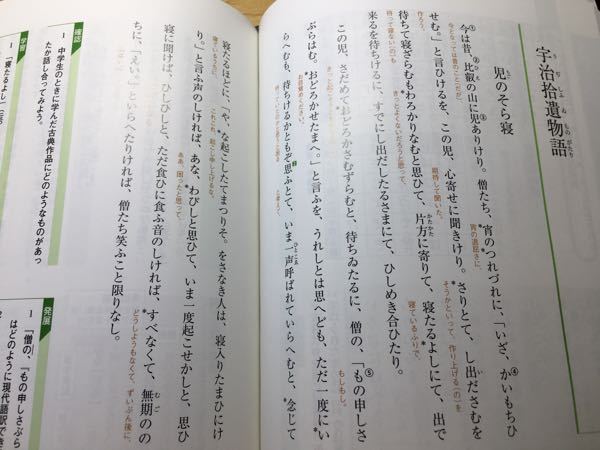 宇治拾遺物語
児のそら寝
①今は昔、②比叡の山に児③ありけり。僧たち、宵のつれづれに、「いざ、④かいもちひ
今となっては昔のことだが、 宵の退屈さに、
せむ。」と言ひけるを、この児、心寄せに聞きけり。さりとて、し出ださむを
作ろう。 期待して聞いた。 そうかといって、作り上げる(の)を
待ちて寝ざらむもわろかりなむと思ひて、片方に寄りて、寝たるよしにて、出で
待って寝ない(の)も きっとよくないだろうと思って、 寝ているふりで、
来るを待ちけるに、すでにし出だしたるさまにて、ひしめき合ひたり。
この児、さだめておどろかさむずらむと、待ちゐたるに、僧の、「⑤もの申しさ
もしもし。
ぶらはむ。おどろかせたまへ。」と言ふを、うれしとは思へども、ただ一度にい
お目覚めください。
らへむも、待ちけるかともぞ思ふとて、いま一声呼ばれていらへむと、念じて
と考えて、
寝たるほどに、「や、な起こしたてまつりそ。をさなき人は、寝入りたまひにけ
これこれ、お起こし申し上げるな。
り。」と言ふ声のしければ、あな、わびしと思ひて、いま一度起こせかしと、思ひ
ああ、困ったと思って、
寝に聞けば、ひしひしと、ただ食ひに食ふ音のしければ、すべなくて、無期のの
どうしようもなくて、ずいぶん後に、
ちに、「えい。」といらへたりければ、僧たち笑ふこと限りなし。
確認
1 中学生のときに学んだ古典作品にどのようなものがあっ
たか話し合ってみよう。
学習
1 「寝たるよし」
発展
1 「僧の、『もの申しさぶら
はどのように現代語訳でき